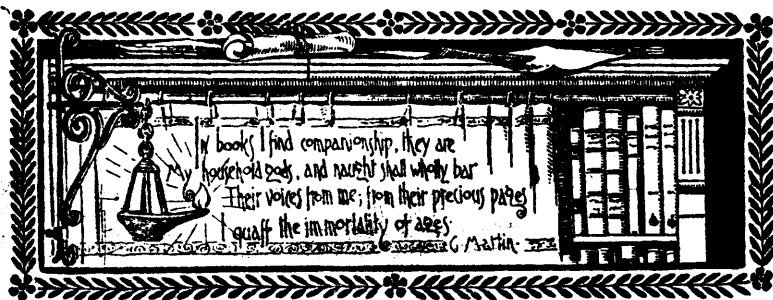 In books I find companionship, they are
My household gods, and naught shall wholly bar
Their voices from me; from their precious pages
I quaff the immortality of ages.
G Martin.